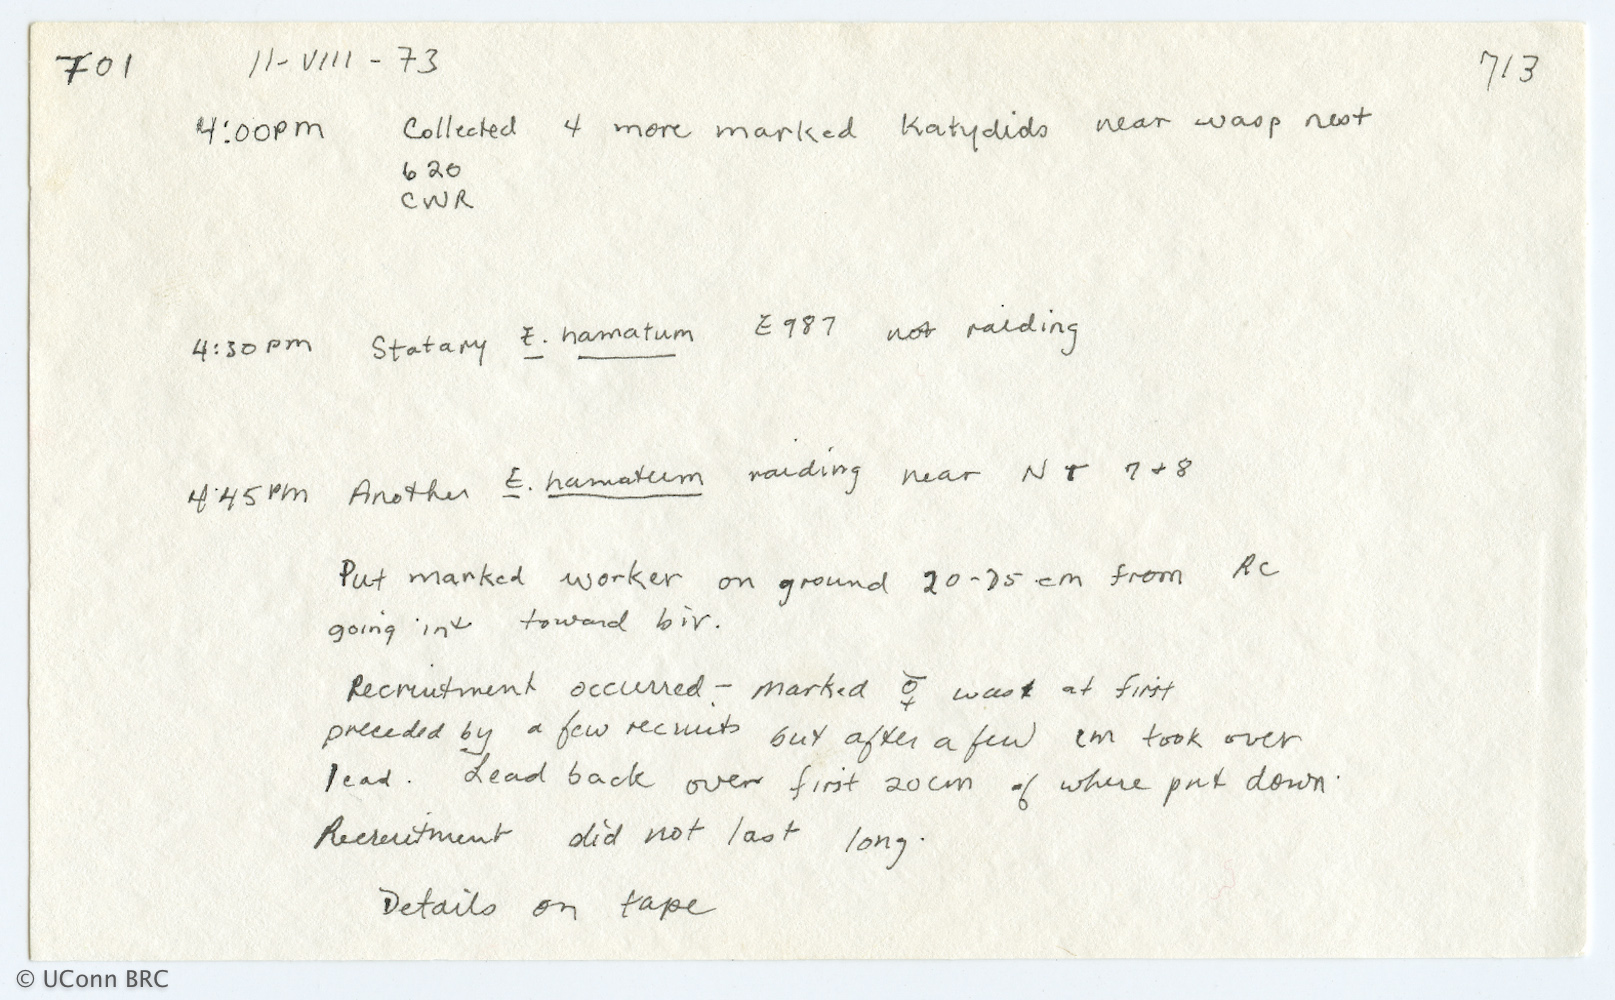 701 11-VIII-73 713
4:00pm Collected 4 more marked Katydids near wasp nest
620
CWR
4:30pm Statary E. hamatum E987 not raiding
4:45pm Another E. hamatum raiding near NT 7+8
Put marked worker on ground 20-25 cm from RC
going int toward biv.
Recruitment occurred - marked ☿ was at first
preceded by a few recruits but after a few cm took over
lead. Lead back over first 20cm of where put down.
Recruitment did not last long.
Details on tape
© UConn BRC